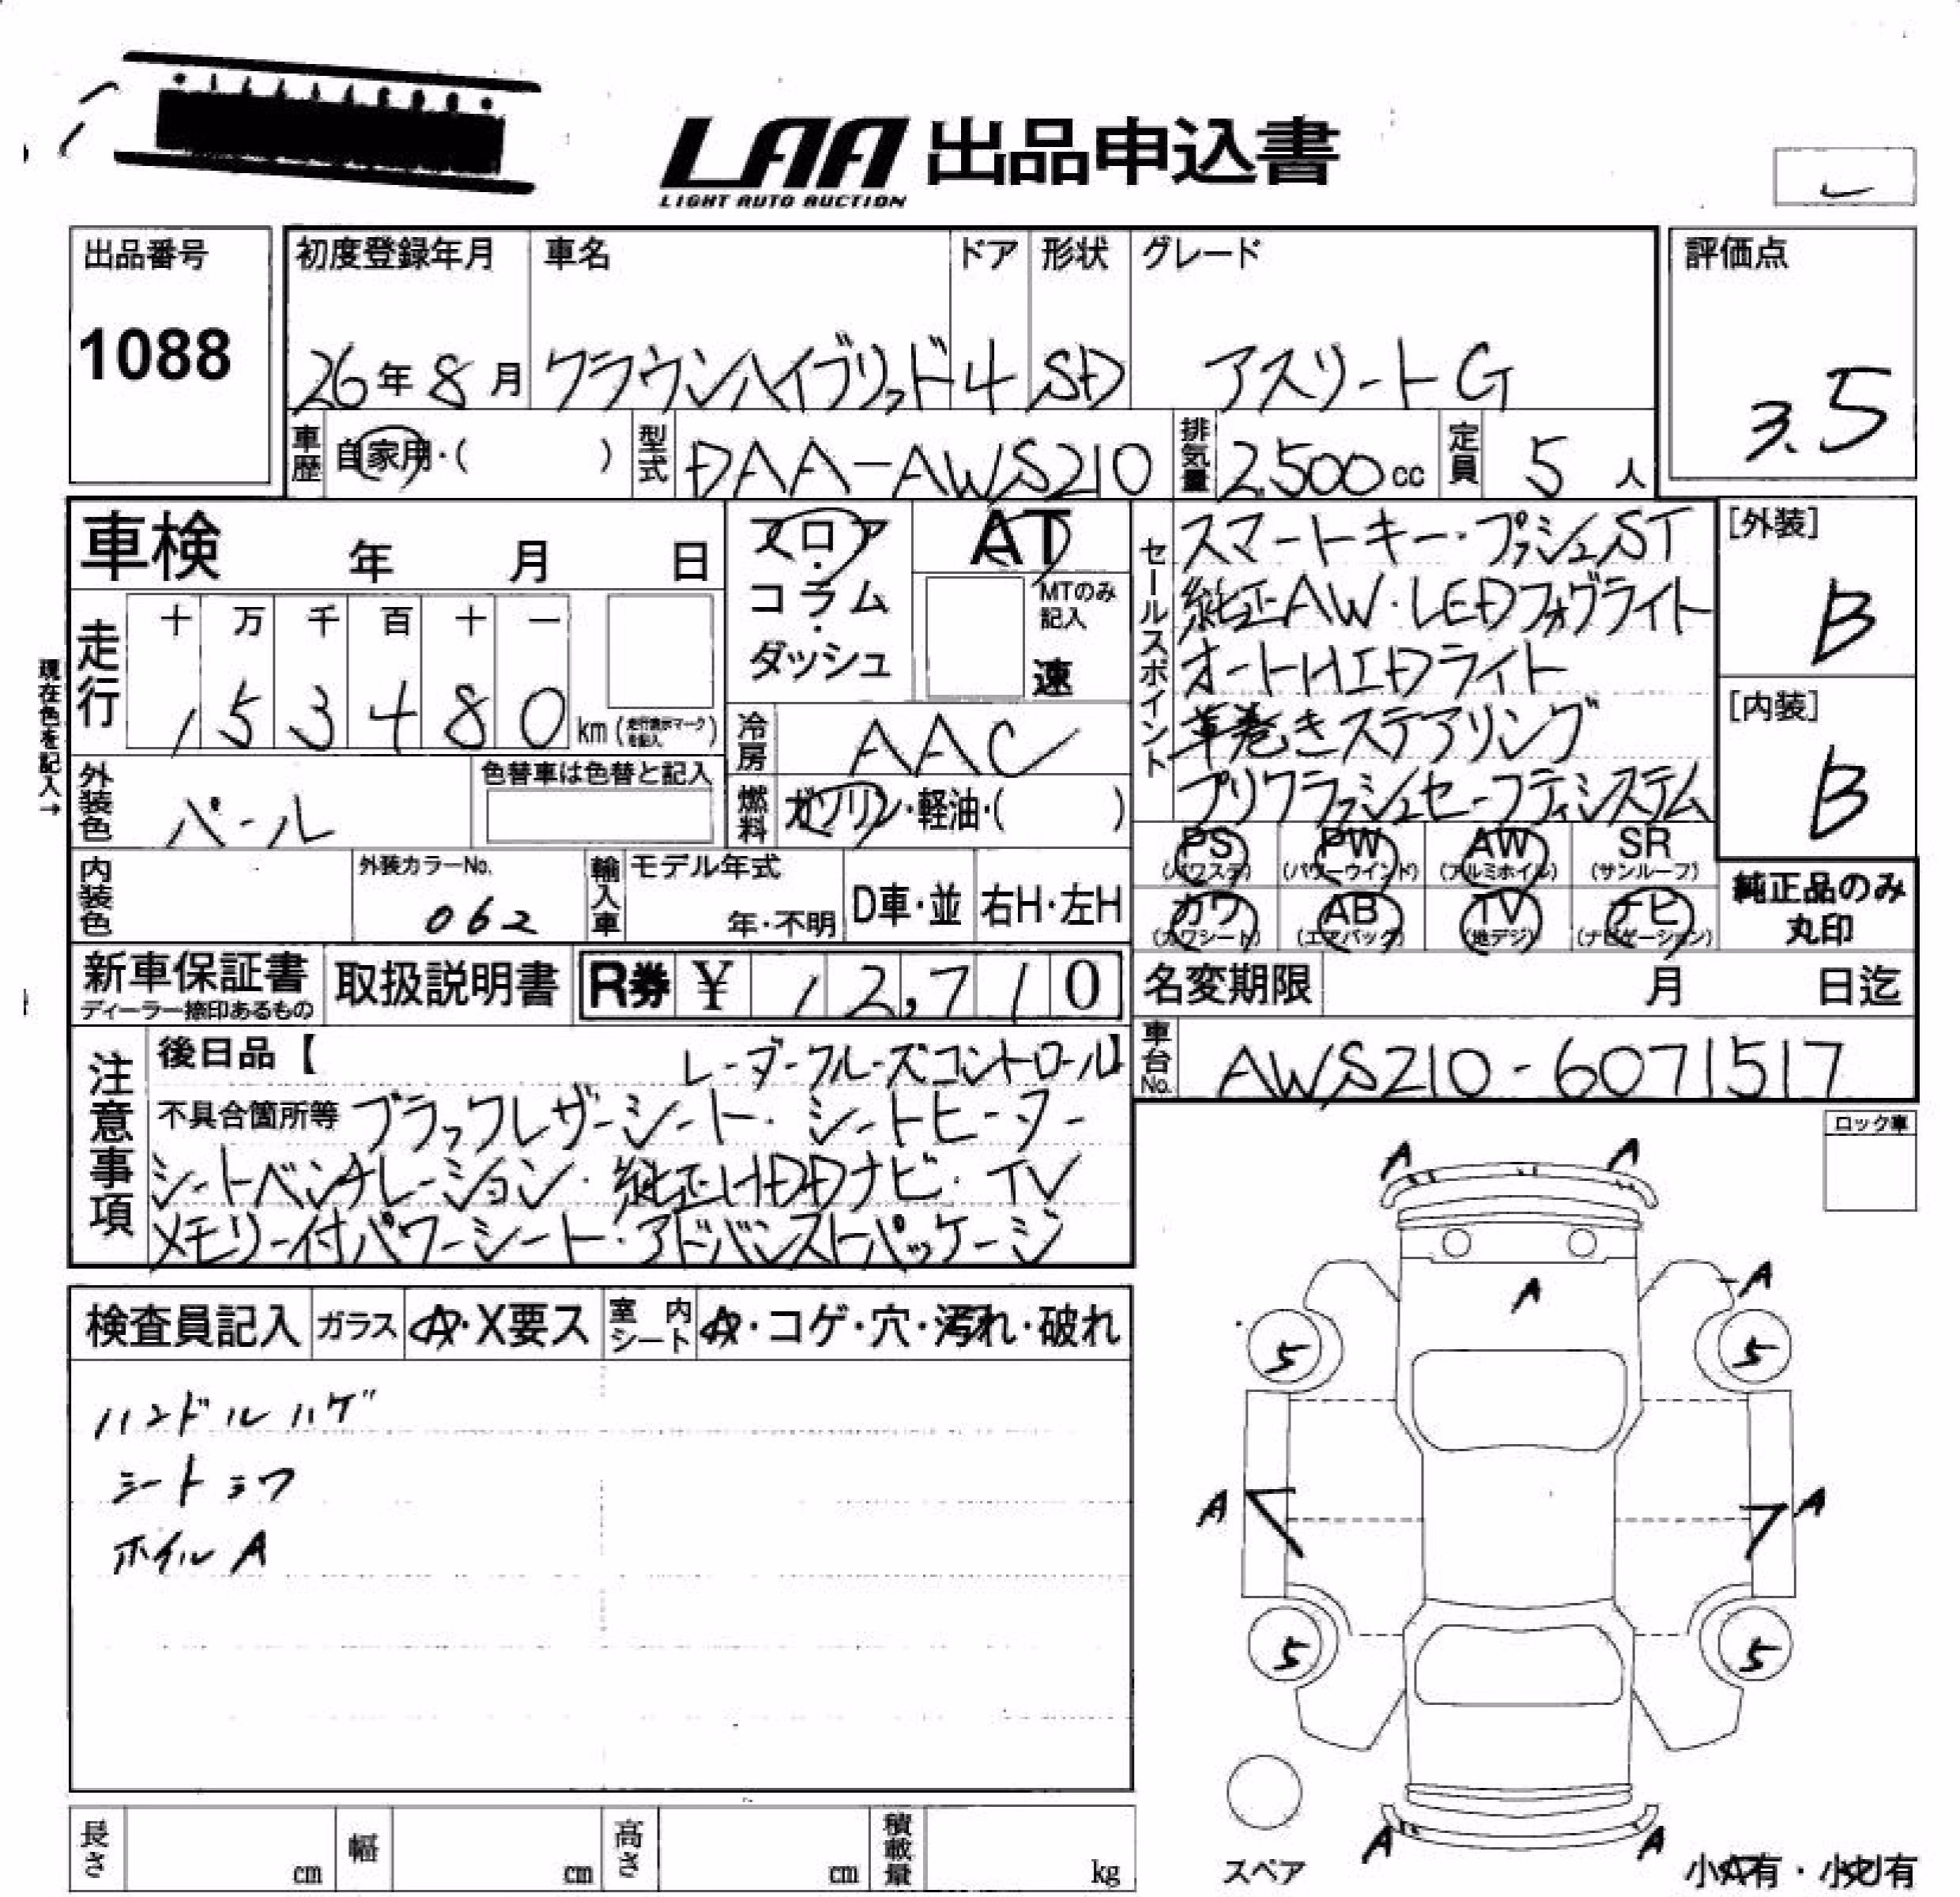 LAA 出品申込書
LIGHT AUTO AUCTION
出品番号
1088
初度登録年月 車名 ドア 形状 グレード
26年8月 クラウンハイブリッド 4 SD アスリートG
評価点
3.5
車歴 自家用・( ) 型式 DAA-AWS210 排気量 2,500cc 定員 5人
車検 年 月 日
フロア・コラム・ダッシュ
AT
MTのみ記入
速
セールスポイント
スマートキー・プッシュST
純正AW・LEDフォグライト
オートHIDライト
革巻きステアリング
プリクラッシュセーフティシステム
[外装]
B
[内装]
B
現在色を記入→
走行 十 万 千 百 十 一
1 5 3 4 8 0 km (走行表示マークを記入)
冷房 AAC
燃料 ガソリン・軽油・( )
外装色 パール
色替車は色替と記入
内装色
外装カラーNo.
062
輸入車 モデル年式
年・不明 D車・並 右H・左H
PS (パワステ) PW (パワーウインド) AW (アルミホイル) SR (サンルーフ)
カワ (カワシート) AB (エアバック) TV (地デジ) ナビ (ナビゲーション)
純正品のみ丸印
新車保証書
ディーラー捺印あるもの
取扱説明書
R券 ¥ 12,710
名変期限 月 日迄
車台No. AWS210-6071517
注意事項
後日品【 レーダークルーズコントロール】
不具合箇所等 ブラックレザーシート・シートヒーター
シートベンチレーション・純正HDDナビ・TV
メモリー付パワーシート・アドバンストパッケージ
ロック車
検査員記入 ガラス A・X要ス 室内シート A・コゲ・穴・汚れ・破れ
ハンドルハゲ
シートシワ
ホイルA
A A
A
A
5 5
A A
5 5
A A
スペア
長さ cm 幅 cm 高さ cm 積載量 kg